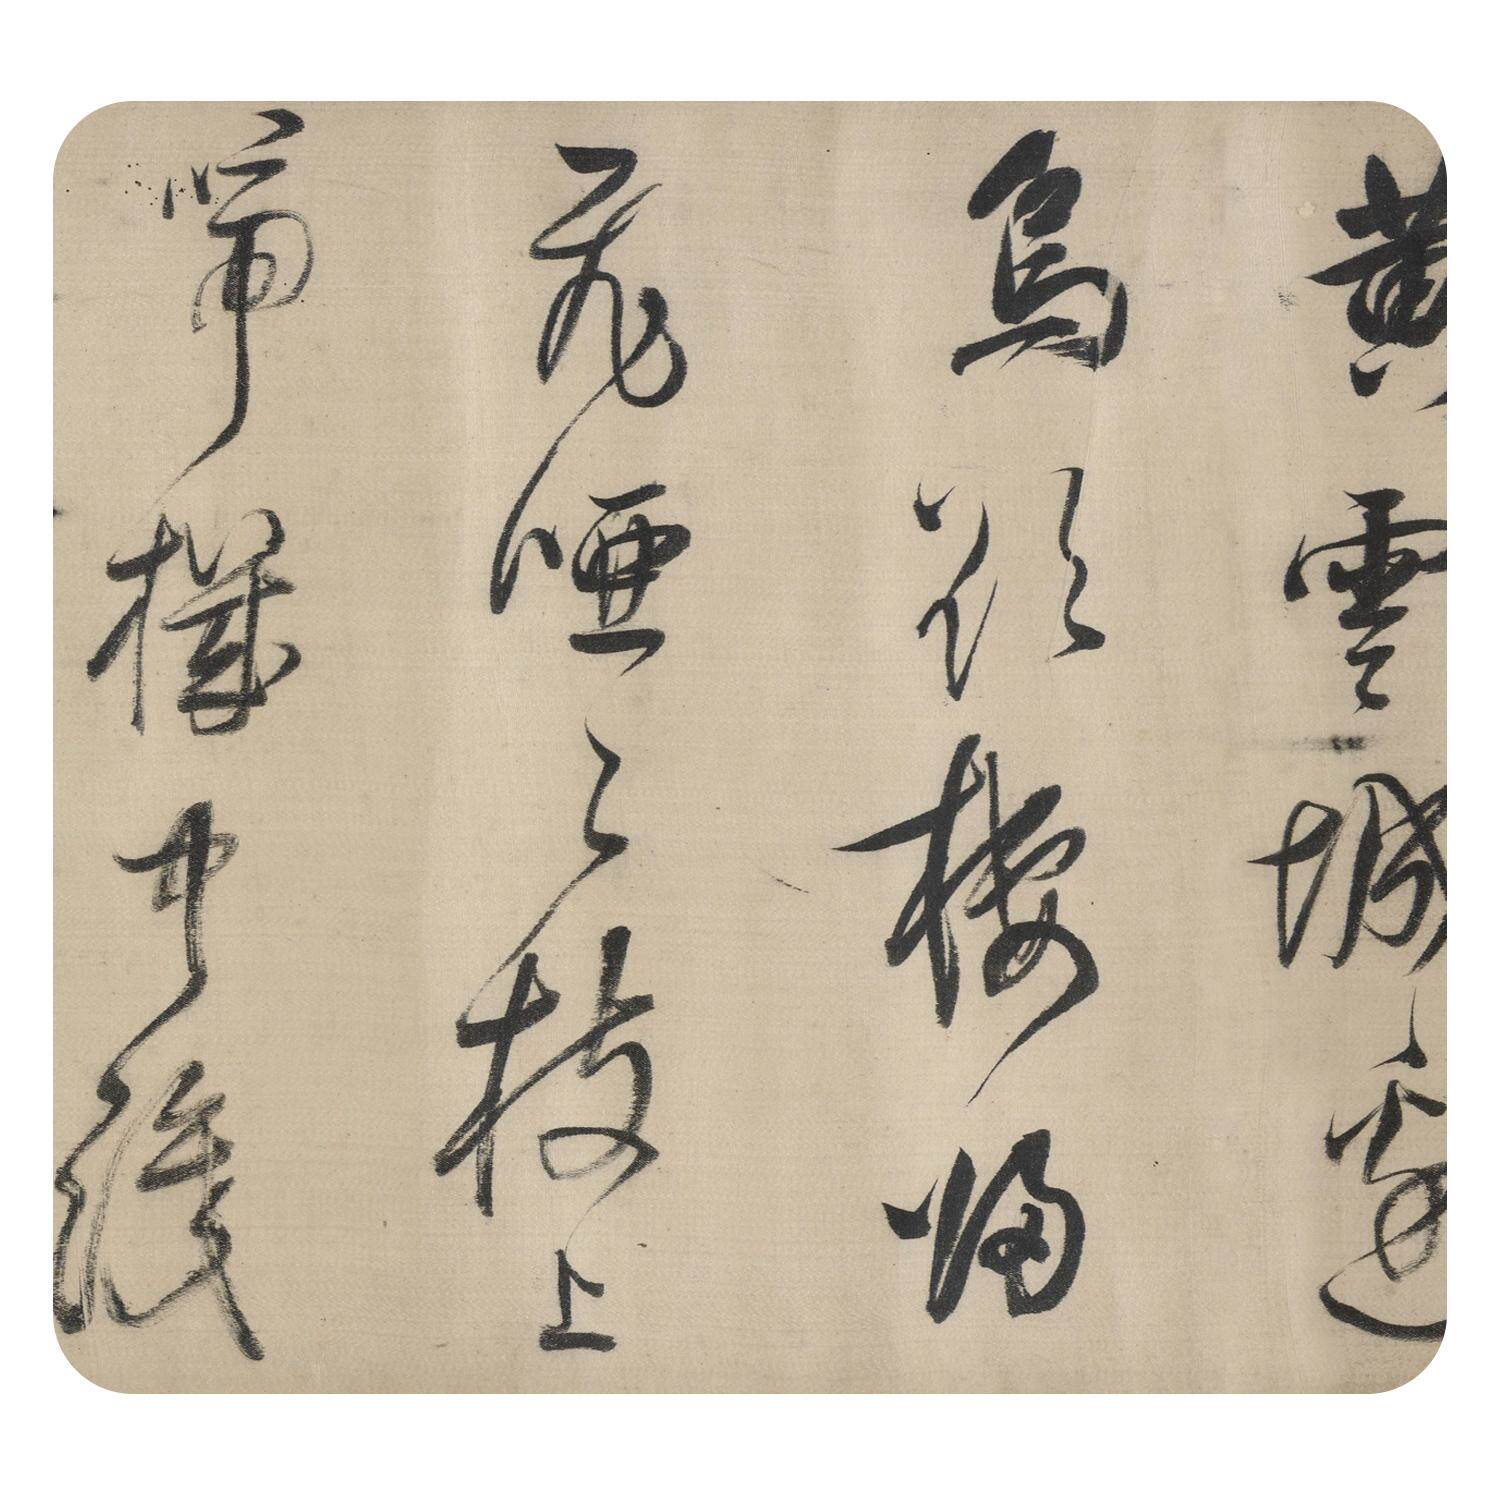 黃雲城邊
烏欲棲歸
飛啞々枝上
啼機中織